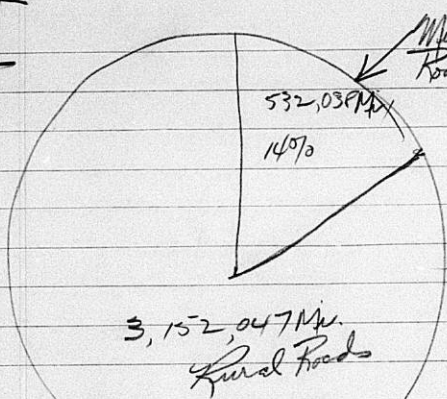 532,038 Mi.
14%
3,152,047 Mi.
Rural Roads